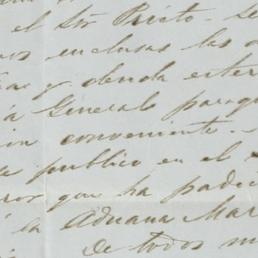 el Sor Prieto - se
inclusas las
y deuda exter
á Generales paraq
conveniente. -
publico en el
que ha padeci
Aduana Mar
De todos m